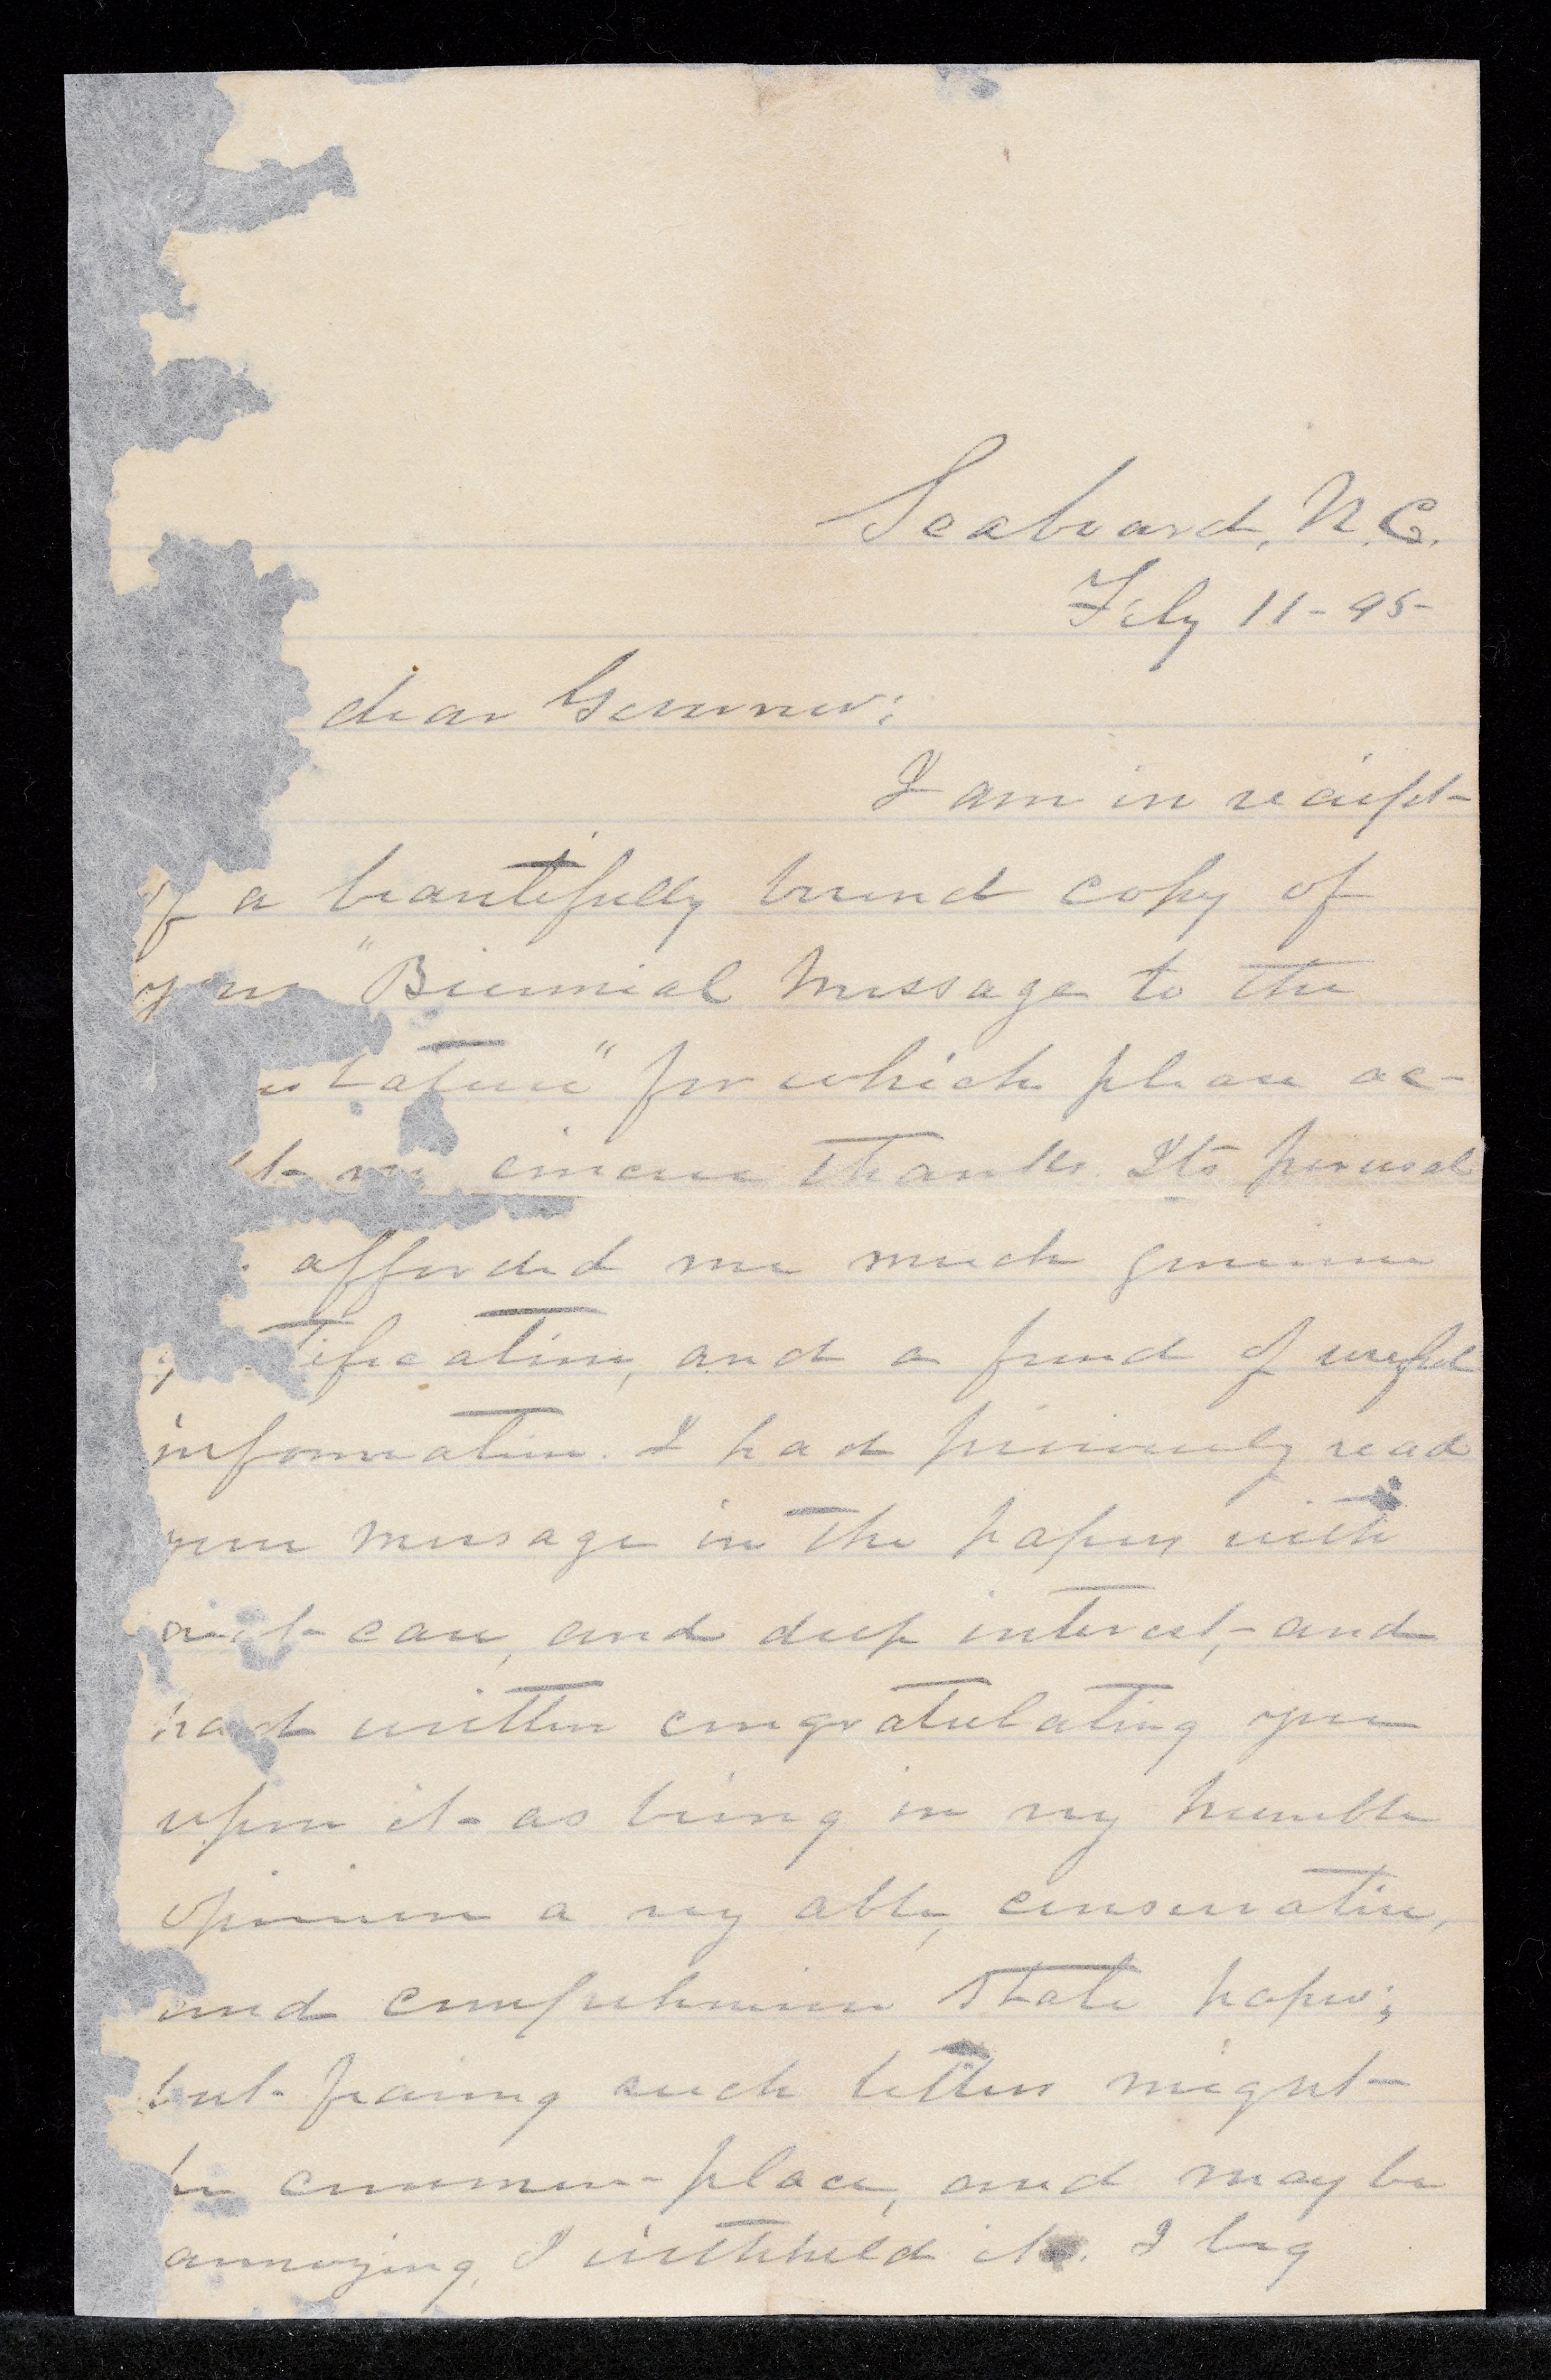 Seaboard, N.C.
Feby 11-95-
dear Governor;
I am in reciept
of a beautifully bound copy of
your "Biennial Message to the
lature" for which please ac-
t my sincere thanks. Its perusal
afforded me much genuine
tification, and a fund of useful
information. I had previously read
your message in the papers with
great care, and deep interest, and
had written congratulating you
upon it as being in my humble
opinion a very able, conservative,
and comprehensive State paper;
but fearing such letters might
be common-place, and may be
annoying, I withheld it. I beg